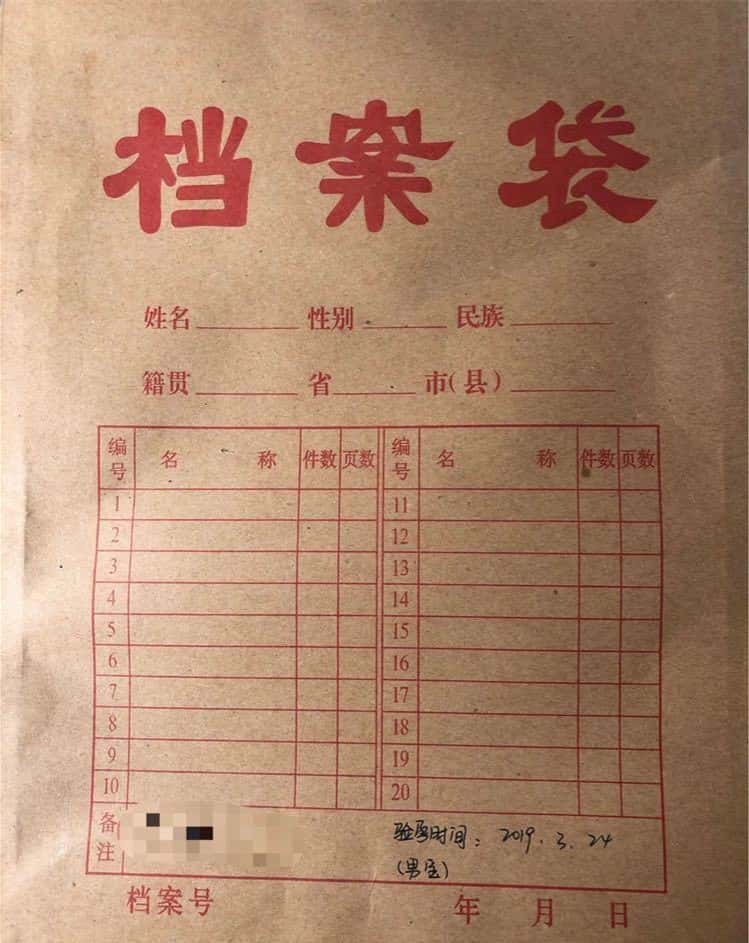 档案袋
姓名 性别 民族
籍贯 省 市(县)
编号 名称 件数 页数 编号 名称 件数 页数
1 11
2 12
3 13
4 14
5 15
6 16
7 17
8 18
9 19
10 20
备注 验房时间：2019.3.24
(男宝)
档案号 年 月 日